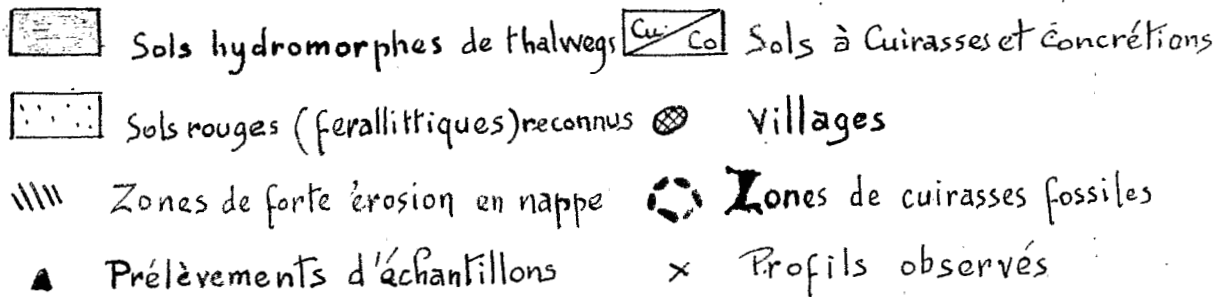 Sols hydromorphes de thalwegs Cu Co Sols à Cuirasses et Concrétions
Sols rouges (ferallitiques) reconnus Villages
Zones de forte érosion en nappe Zones de cuirasses fossiles
Prélèvements d'échantillons Profils observés